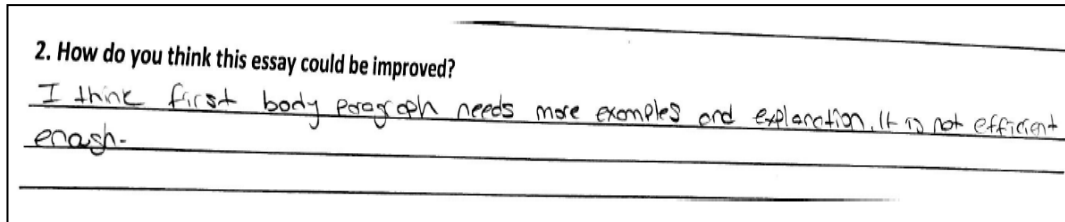 2. How do you think this essay could be improved?
I think first body paragraph needs more examples and explanation. It is not efficient
enash.